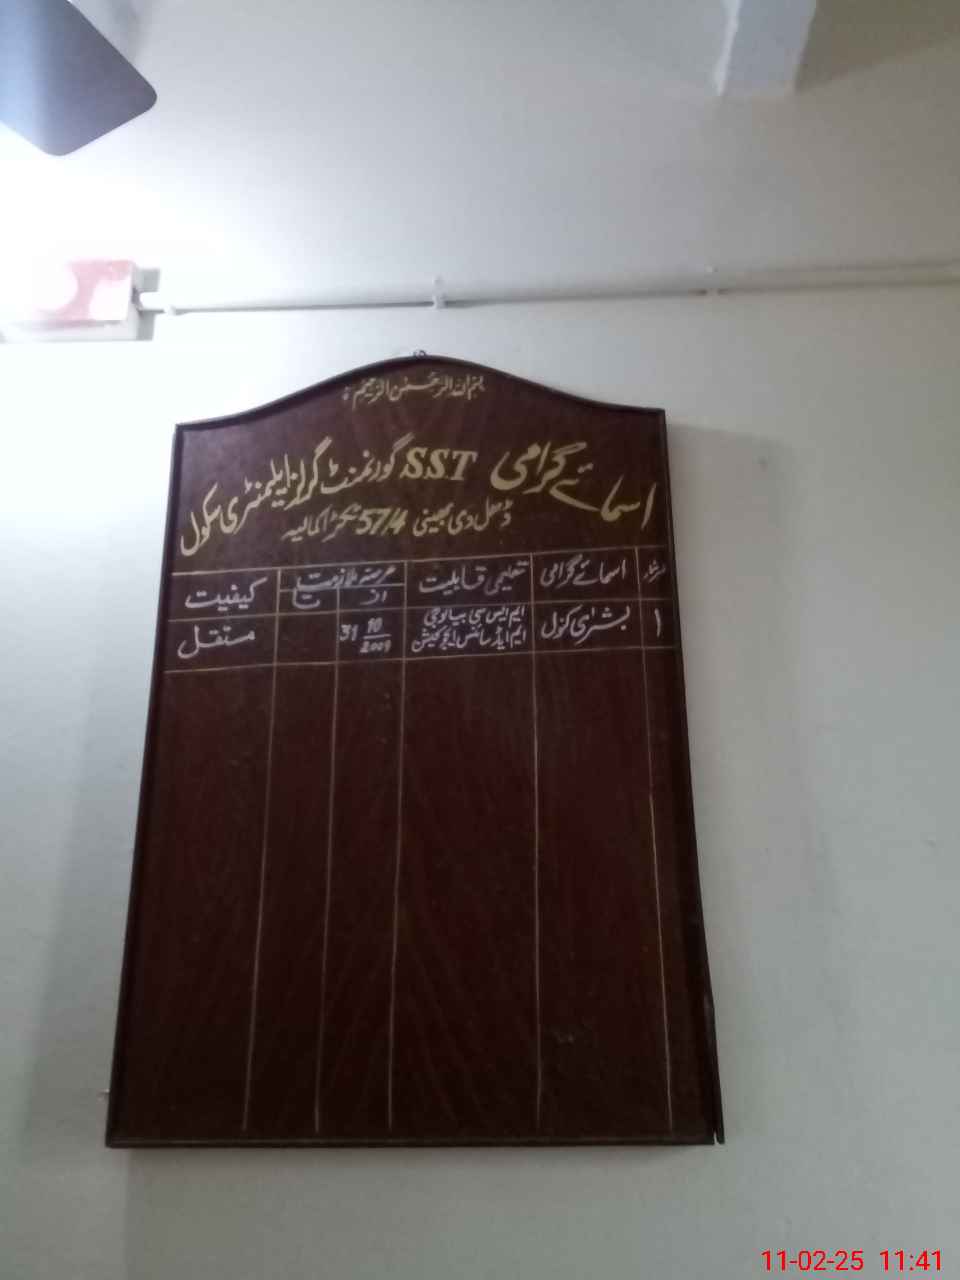 بسم اللہ الرحمٰن الرحیم
اسمائے گرامی SST گورنمنٹ گرلز ایلیمنٹری سکول
ڈھل دی بھینی 57/4 کمالیہ
نمبرشمار اسمائے گرامی تعلیمی قابلیت عرصہ ملازمت کیفیت
از تا
۱ بشریٰ کنول ایم ایس سی بیالوجی 31 10/2009 مستقل
ایم ایڈ سائنس ایجوکیشن
11-02-25 11:41